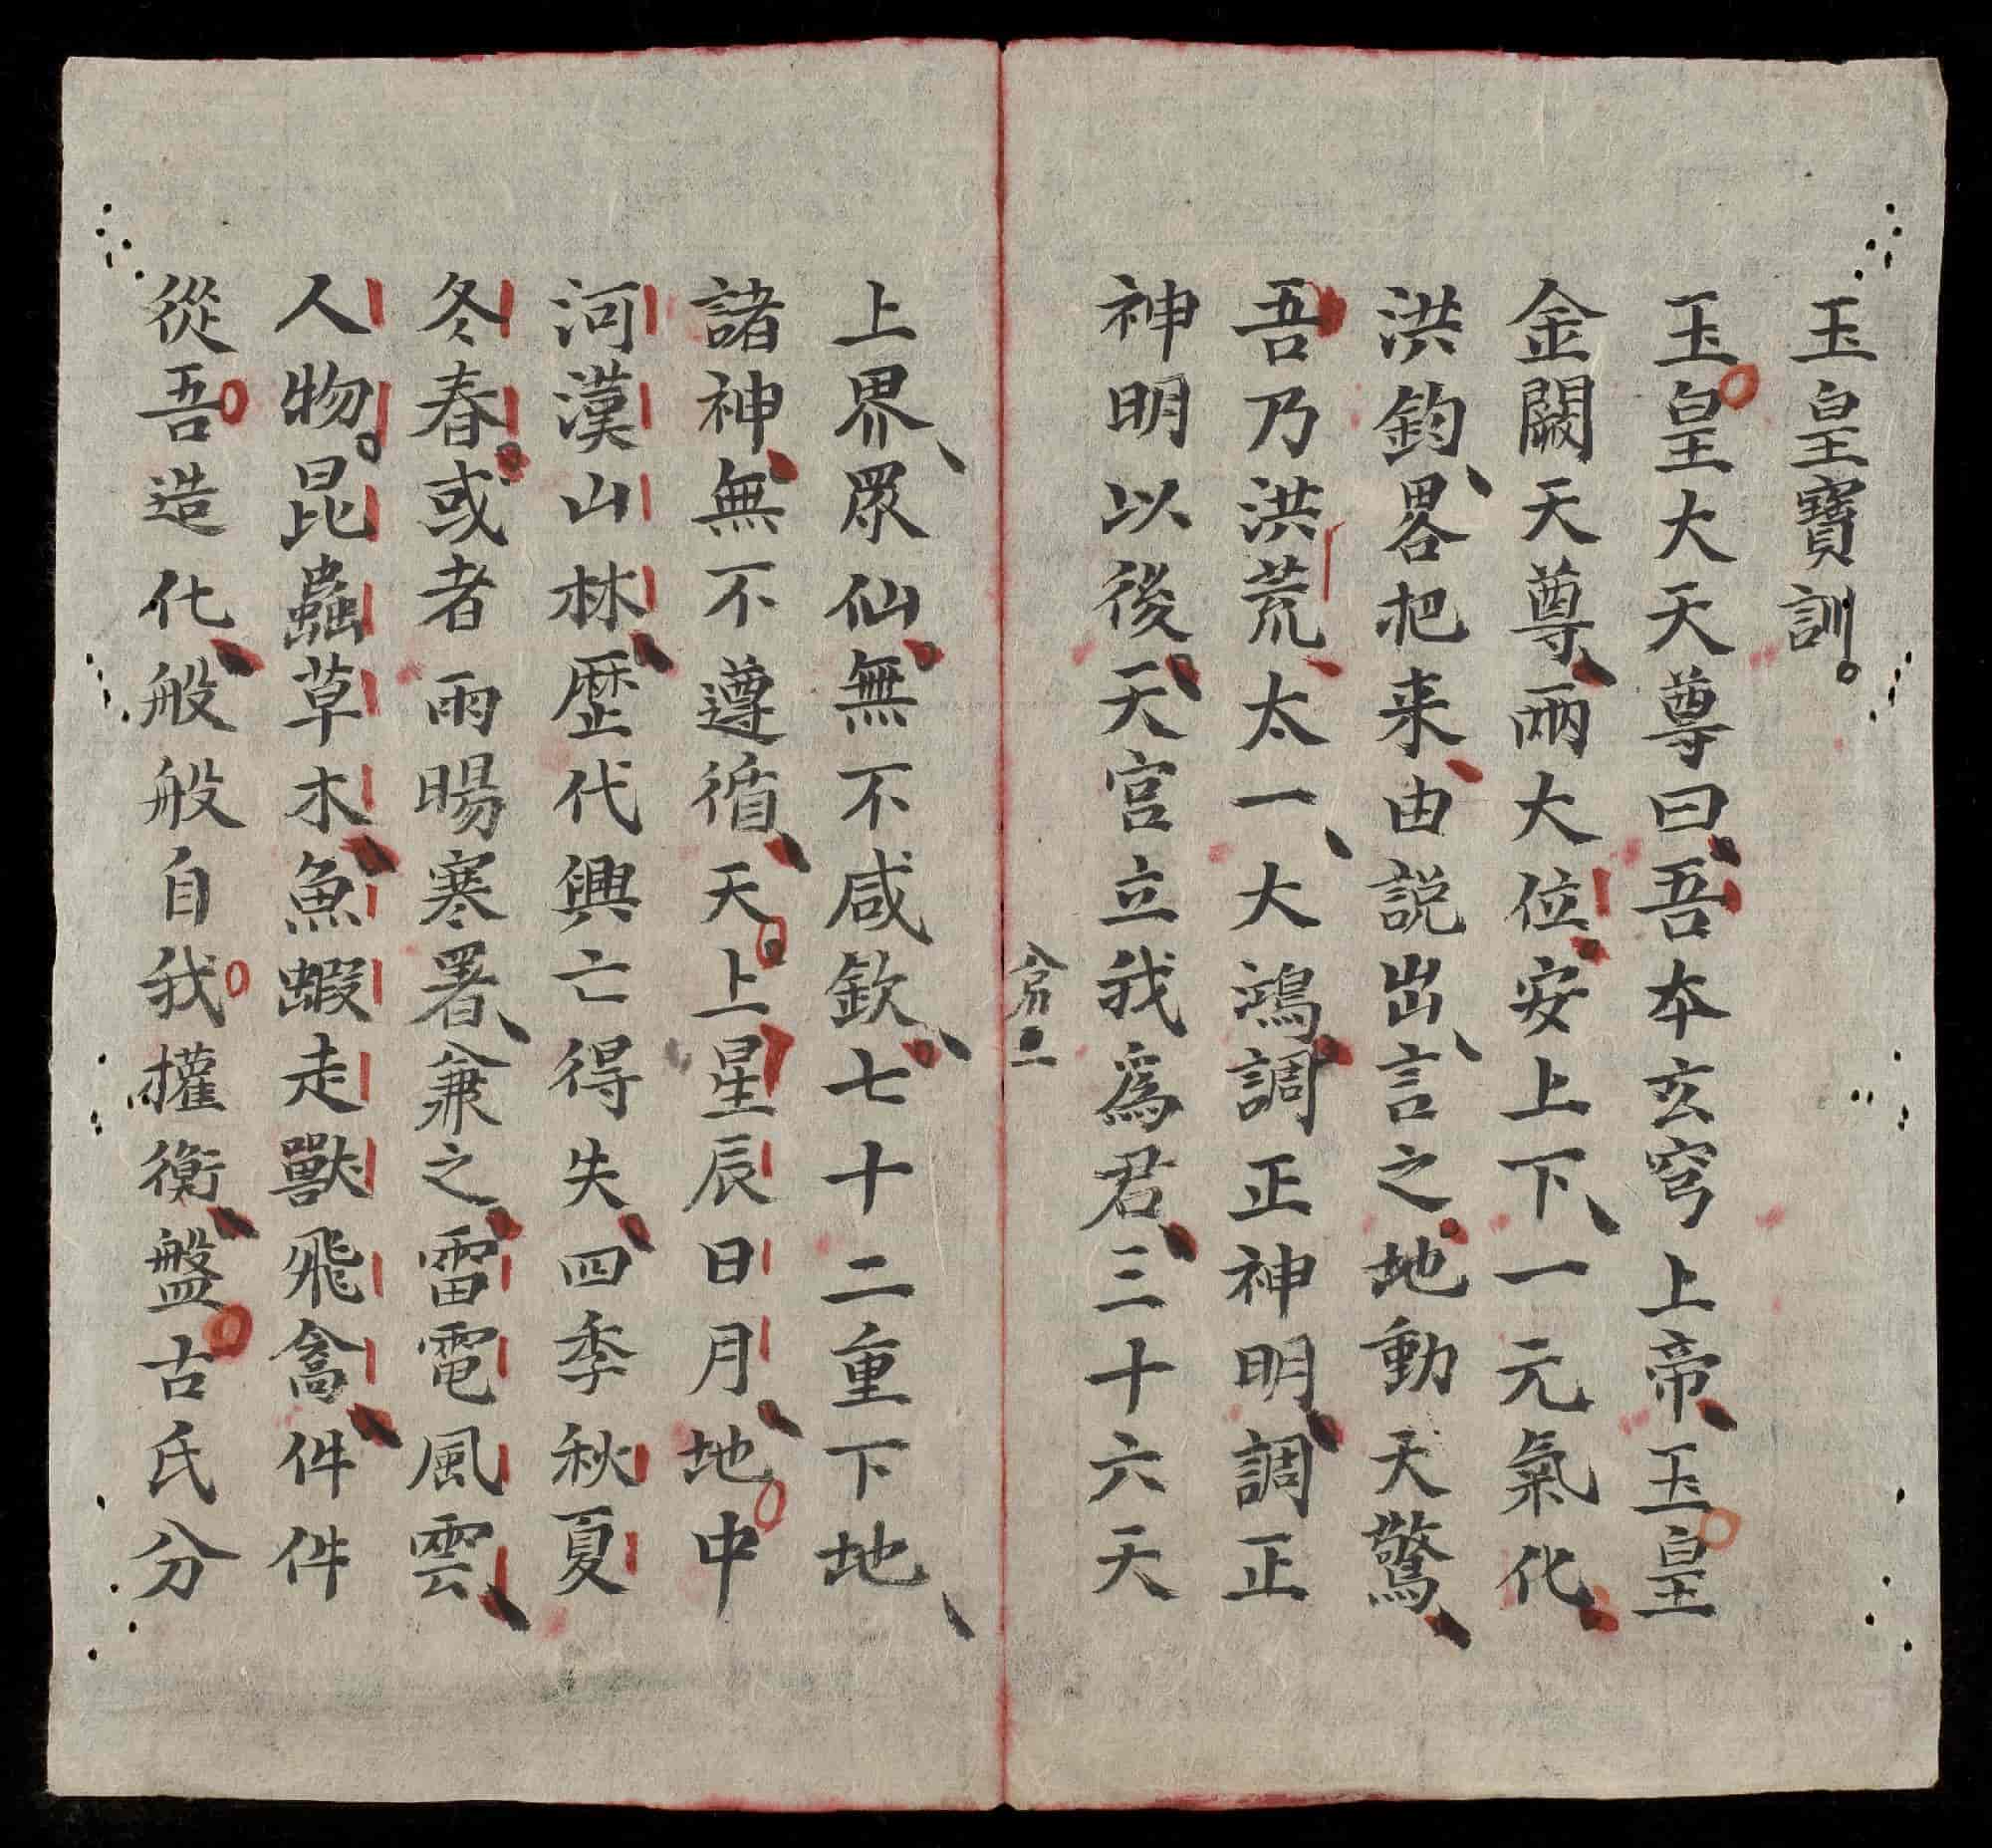 玉皇寶訓。
玉皇大天尊曰、吾本玄穹上帝、玉皇
金闕天尊、兩大位、安上下、一元氣化、
洪鈞、畧把来、由説出、言之、地動天驚、
吾乃洪荒、太一、大鴻、調正神明、調正
神明以後、天宫立我爲君、三十六天
上界、眾仙、無不咸欽、七十二重下地、
諸神、無不遵循、天上星辰日月、地中
河漢山林、歷代興亡得失、四季秋夏
冬春。或者雨暘寒署、兼之、雷電風雲、
人物。昆蟲草木、魚蝦走獸飛禽、件件
從吾造化、般般自我權衡、盤古氏分